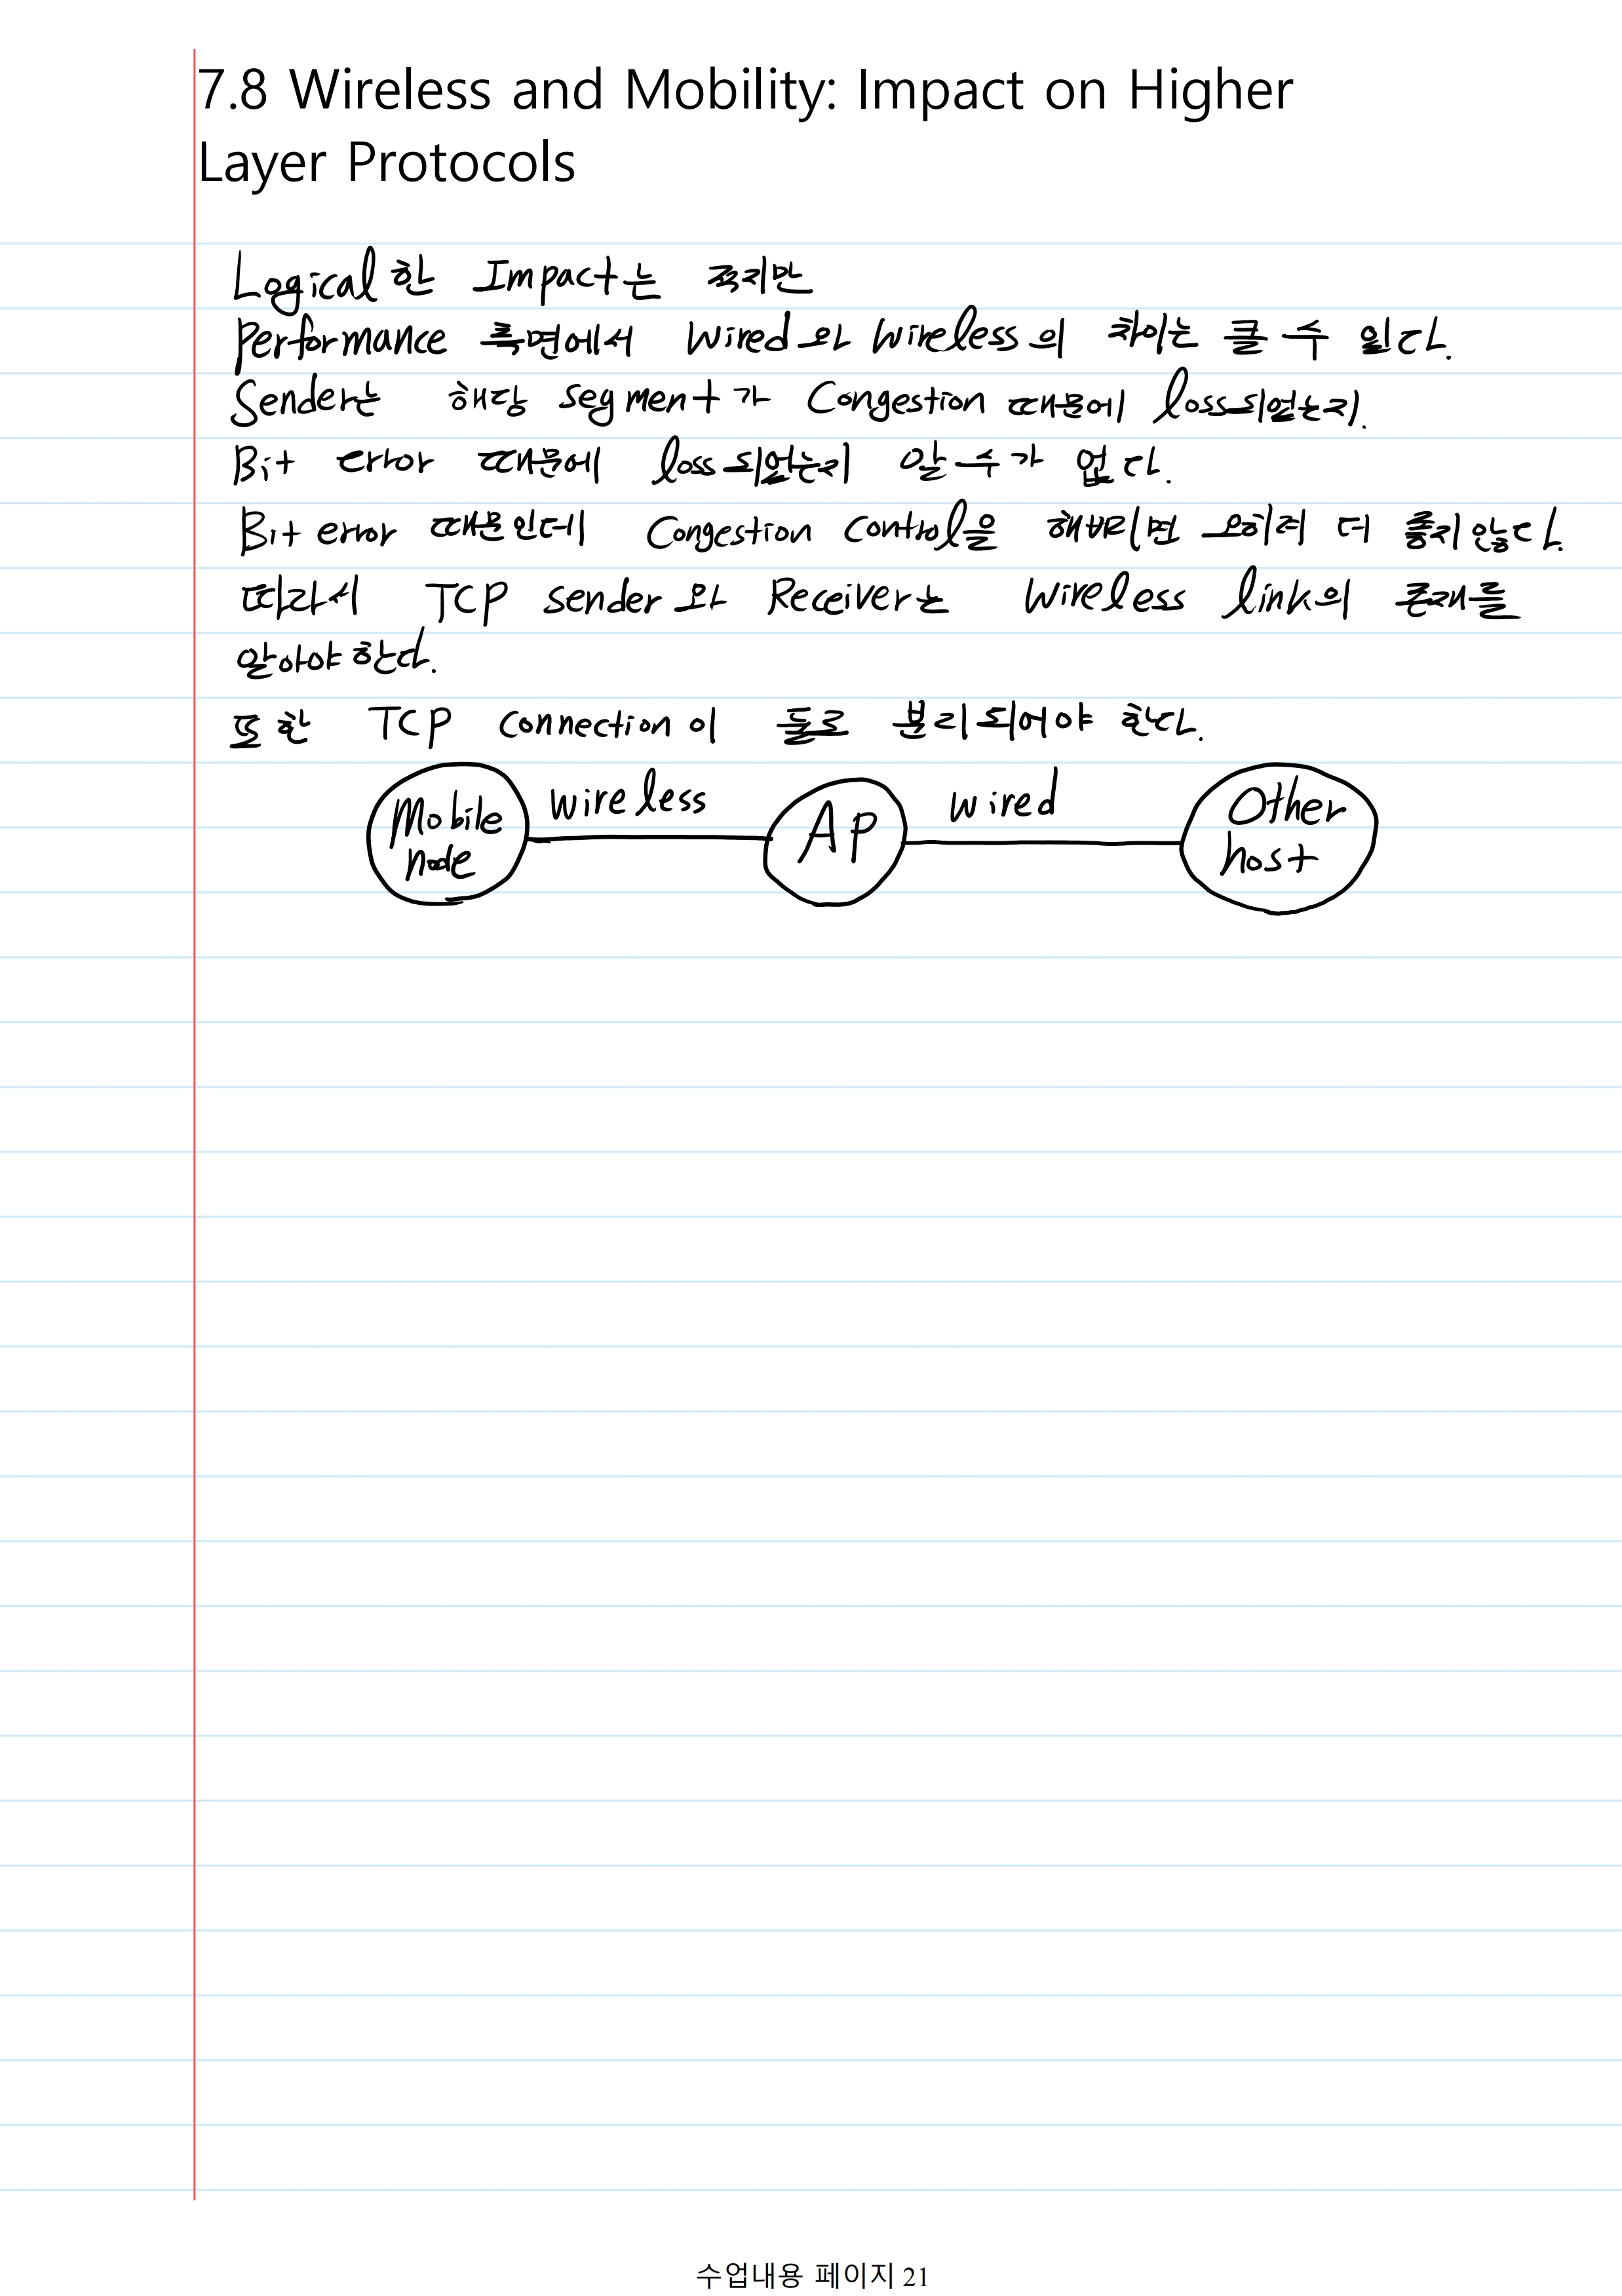 7.8 Wireless and Mobility: Impact on Higher
Layer Protocols
Logical한 Impact는 적지만
Performance 측면에서 Wired와 Wireless의 차이는 클 수 있다.
Sender는 해당 segment가 Congestion 때문에 loss되었는지.
Bit error 때문에 loss 되었는지 알 수가 없다.
Bit error 때문인데 Congestion control을 해버리면 오히려 더 좋지 않다.
따라서 TCP sender와 Receiver는 Wireless link의 존재를
알아야 한다.
또한 TCP Connection이 둘로 분리되어야 한다.
Mobile node wireless AP wired Other host
수업내용 페이지 21